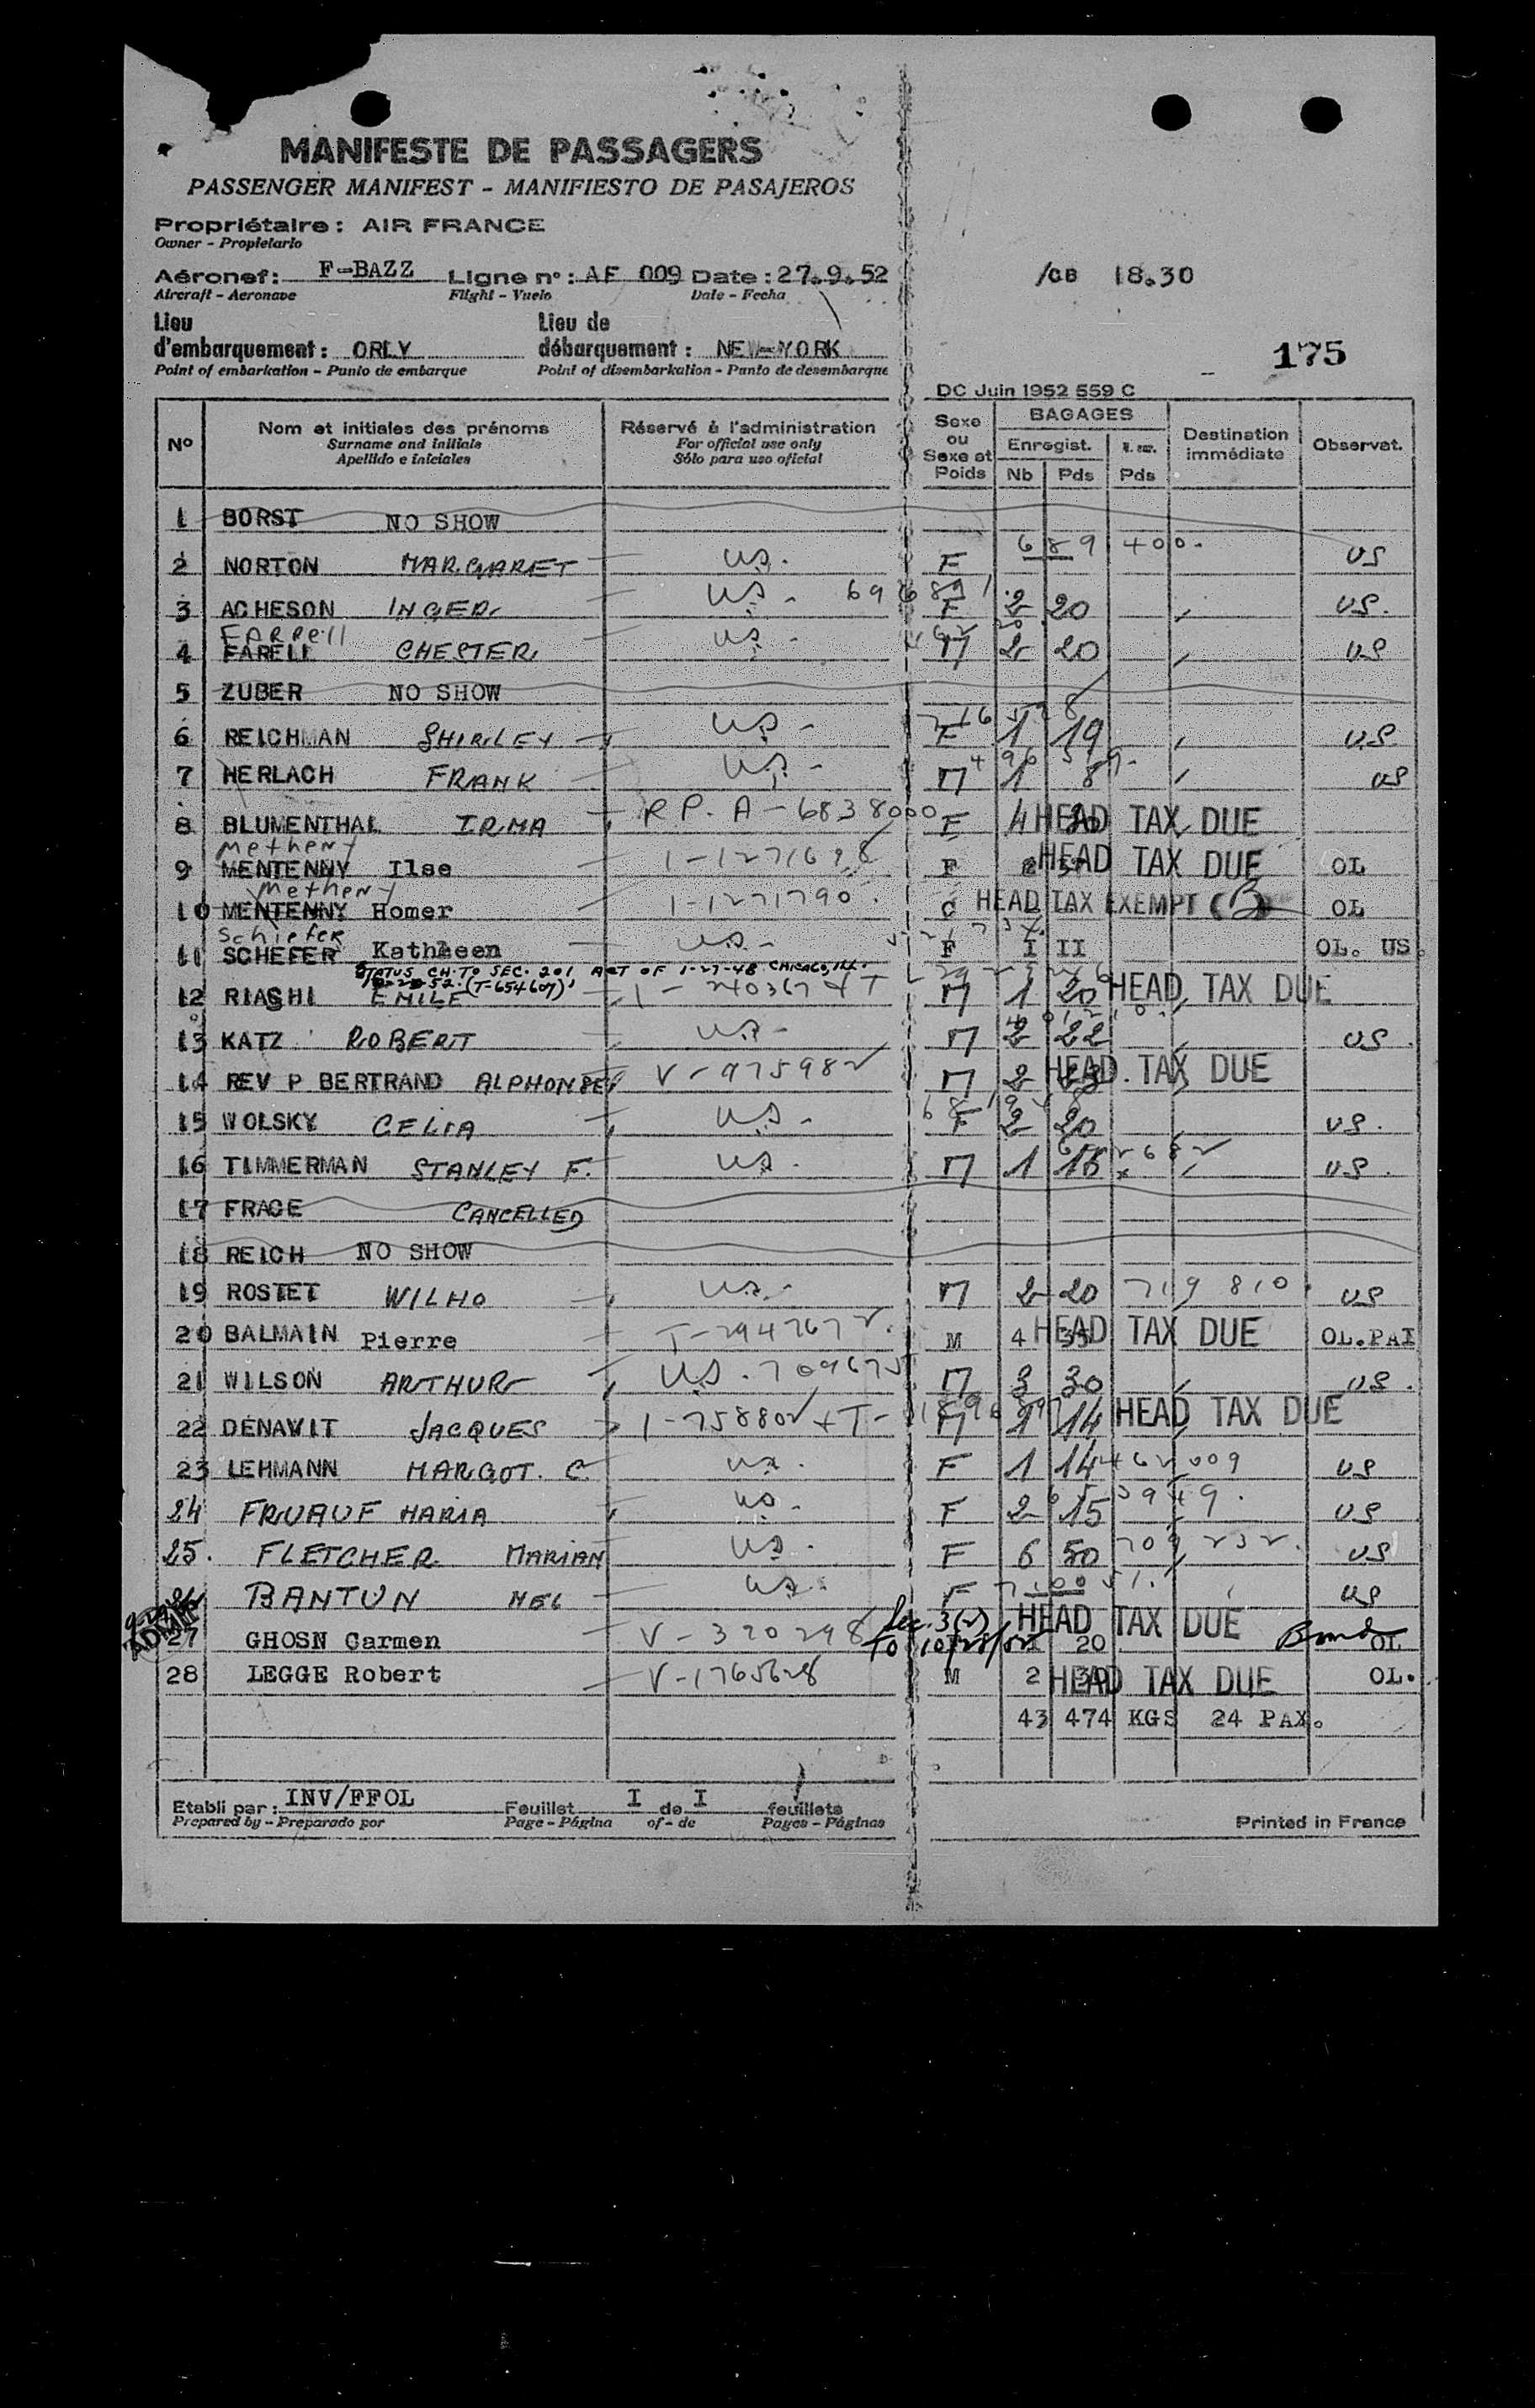 MANIFESTE DE PASSAGERS
PASSENGER MANIFEST - MANIFIESTO DE PASAJEROS
Propriétaire : AIR FRANCE
Owner - Propietario
Aéronef : F-BAZZ Ligne n° : AF 009 Date : 27.9.52 /GB 18.30
Aircraft - Aeronave Flight - Vuelo Date - Fecha
Lieu Lieu de
d'embarquement : ORLY débarquement : NEW-YORK 175
Point of embarkation - Punto de embarque Point of disembarkation - Punto de desembarque
DC Juin 1952 559 C
N° Nom et initiales des prénoms Réservé à l'administration Sexe ou Sexe et Poids BAGAGES Destination immédiate Observat.
Surname and initials For official use only Enregist.
Apellido e iniciales Sólo para uso oficial Nb Pds Pds
1 BORST NO SHOW
2 NORTON MARGARET US. F 689400. US
3 ACHESON INGER US. F 2 20 US.
Farrell
4 FARELL CHESTER US. M 2 20 US
5 ZUBER NO SHOW
6 REICHMAN SHIRLEY US. F 1 19 US
7 HERLACH FRANK US. M 1 8 US
8 BLUMENTHAL IRMA RP. A-6838000 F 4 HEAD TAX DUE
Metheny
9 MENTENNY Ilse I-1271698 F HEAD TAX DUE OL
Metheny
10 MENTENNY Homer I-1271790 C HEAD TAX EXEMPT OL
Schiefer
11 SCHEFER Kathleen US. F I II OL. US.
STATUS CH. TO SEC. 201 ACT OF 1-27-48 CHICAGO, ILL.
(T-654607)
12 RIASHI EMILE I-240367 + T M 1 20 HEAD TAX DUE
13 KATZ ROBERT US. M 2 22 US.
14 REV P BERTRAND ALPHONSE V-975982 M 2 HEAD TAX DUE
15 WOLSKY CELIA US. F 2 20 US.
16 TIMMERMAN STANLEY F. US. M 1 US.
17 FRACE CANCELLED
18 REICH NO SHOW
19 ROSTET WILHO US. M 2 20 719810. US
20 BALMAIN Pierre T-2947672. M 4 HEAD TAX DUE OL.PAI
21 WILSON ARTHUR US. 709675 M 3 30 US.
22 DENAVIT JACQUES I-758802 + T- M 1 14 HEAD TAX DUE
23 LEHMANN MARGOT. C. US. F 1 14 462009 US
24 FRUAUF MARIA US. F 2 15 US
25. FLETCHER MARIAN US. F 6 50 709232. US
BANTUN US. F US
ADMIT
27 GHOSN Carmen V-320298 Sec. 3(2) to 10/28/52 20 HEAD TAX DUE Bond OL
28 LEGGE Robert V-1765628 M 2 HEAD TAX DUE OL.
43 474 KGS 24 PAX.
Etabli par : INV/FFOL Feuillet I de I feuillets
Prepared by - Preparado por Page - Página of - de Pages - Páginas Printed in France